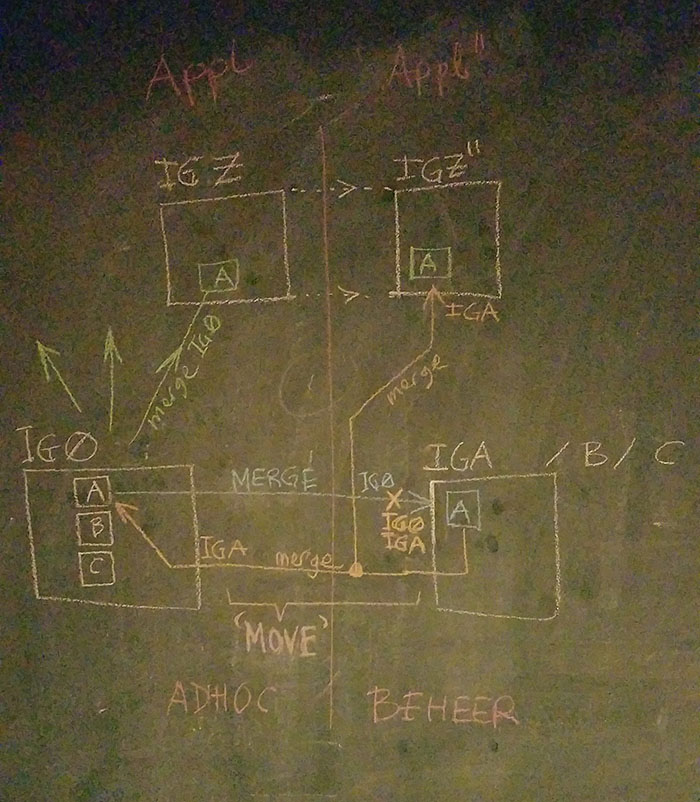 Appl
Appl"
IGZ
IGZ"
A
A
IGA
merge IGØ
merge
IGØ
IGA
/ B / C
A
MERGE
IGØ
X
A
B
IGØ
IGA
IGA
merge
C
'MOVE'
ADHOC
BEHEER